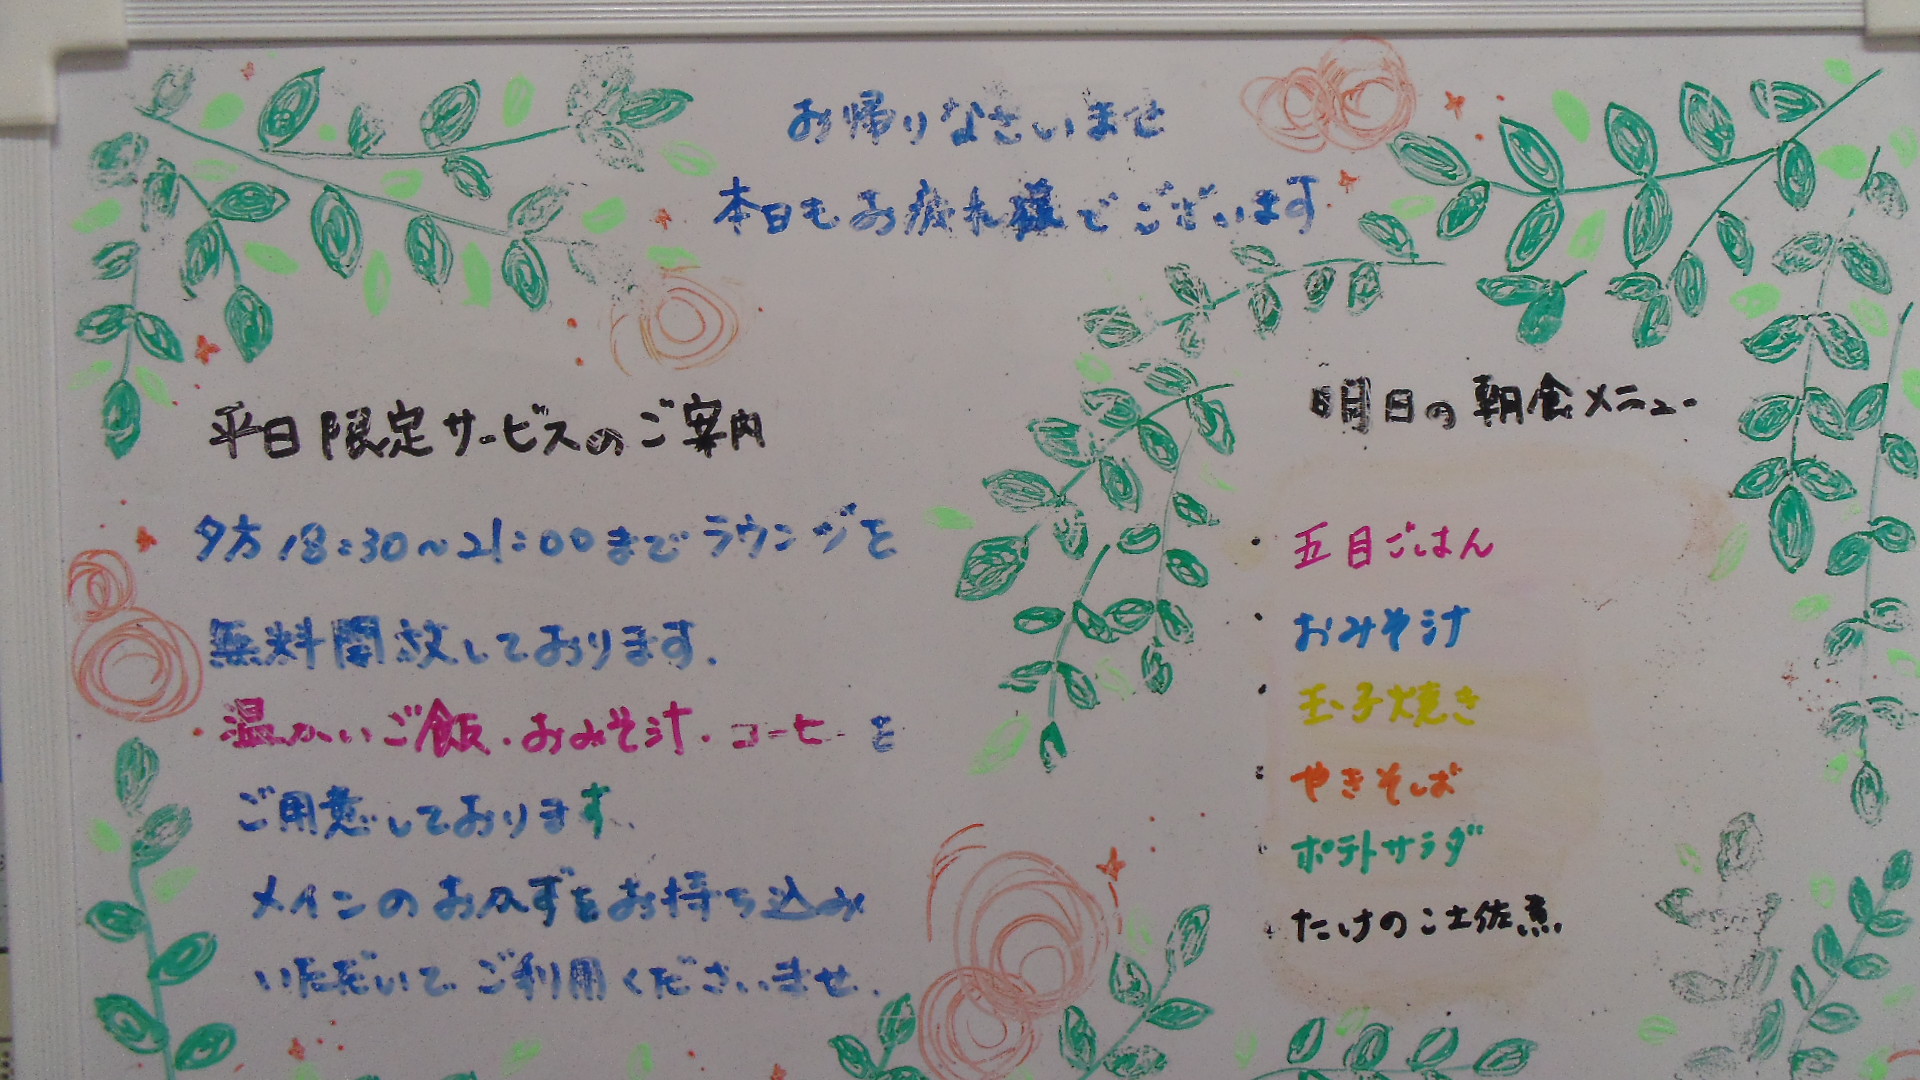 お帰りなさいませ
本日もお疲れ様でございます
平日限定サービスのご案内
夕方18:30～21:00までラウンジを
無料開放しております.
温かいご飯.おみそ汁.コーヒーを
ご用意しております.
メインのおかずをお持ち込み
いただいてご利用くださいませ.
明日の朝食メニュー
・五目ごはん
・おみそ汁
・玉子焼き
・やきそば
・ポテトサラダ
・たけのこ土佐煮